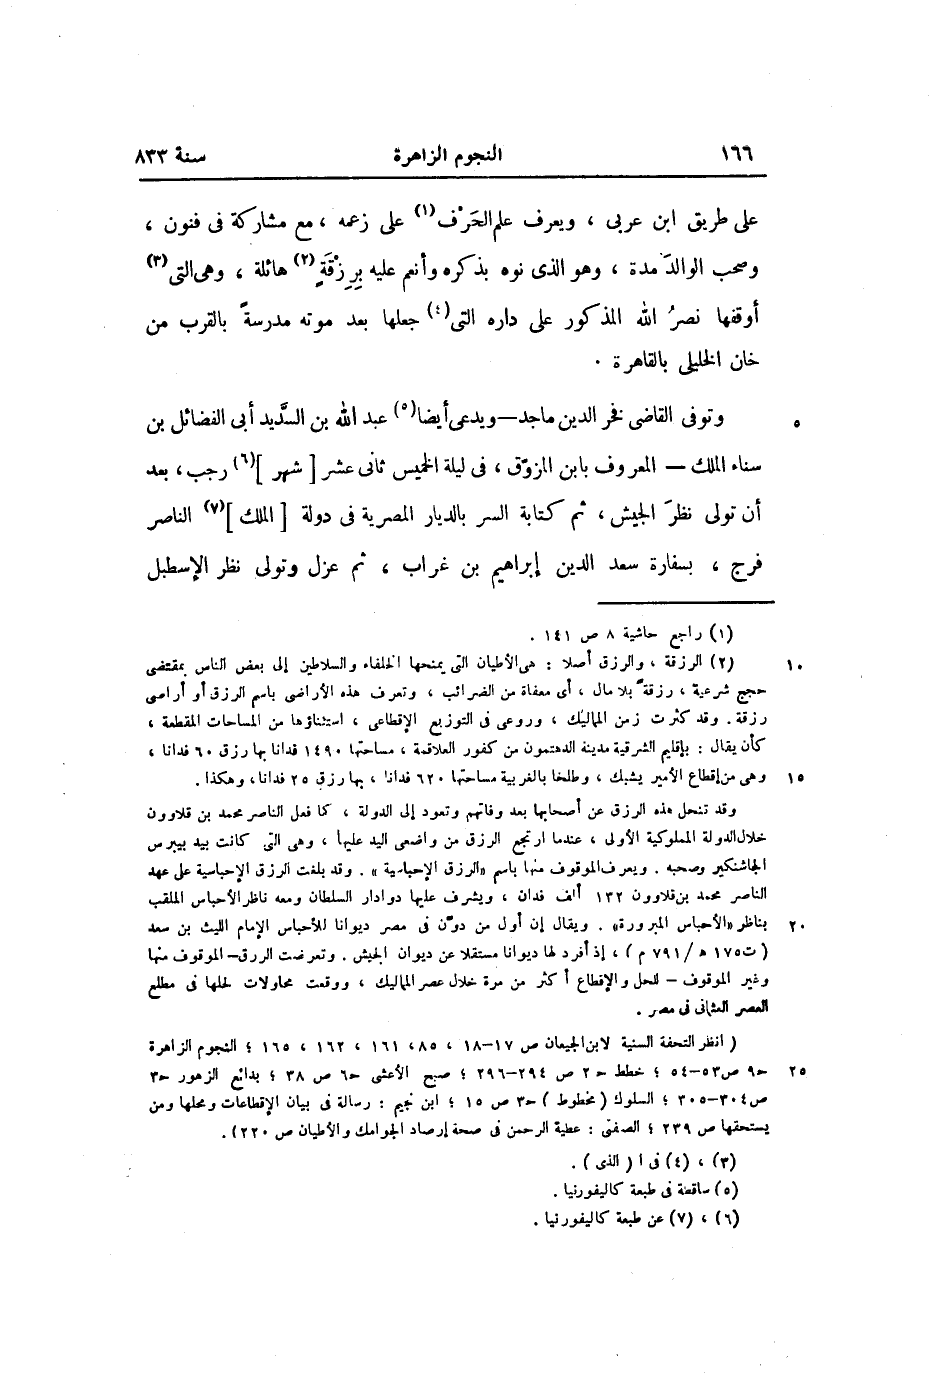 ١٦٦ النجوم الزاهرة سنة ٨٣٣
على طريق ابن عربى ، ويعرف علم الحَرْف(١) على زعمه ، مع مشاركة فى فنون ،
وصحب الوالدَ مدة ، وهو الذى نوه بذكره وأنعم عليه بِرِزْقَةٍ(٢) هائلة ، وهى التى(٣)
أوقفها نصرُ الله المذكور على داره التى(٤) جعلها بعد موته مدرسةً بالقرب من
خان الخليلى بالقاهرة .
وتوفى القاضى فخر الدين ماجد — ويدعى أيضا(٥) عبد الله بن السَّديد أبى الفضائل بن ٥
سناء الملك — المعروف بابن المزوّق ، فى ليلة الخميس ثانى عشر [ شهر ](٦) رجب ، بعد
أن تولى نظرَ الجيش ، ثم كتابة السر بالديار المصرية فى دولة [ الملك ](٧) الناصر
فرج ، بسفارة سعد الدين إبراهيم بن غراب ، ثم عزل وتولى نظر الإسطبل
(١) راجع حاشية ٨ ص ١٤١ .
(٢) الرزقة ، والرزق أصلا : هى الأطيان التى يمنحها الخلفاء والسلاطين إلى بعض الناس بمقتضى ١٠
حجج شرعية ، رزقةً بلا مال ، أى معفاة من الضرائب ، وتعرف هذه الأراضى باسم الرزق أو أراضى
رزقة . وقد كثرت زمن المماليك ، وروعى فى التوزيع الإقطاعى ، استثناؤها من المساحات المقطعة ،
كأن يقال : بإقليم الشرقية مدينة الدهتمون من كفور العلاقمة ، مساحتها ١٤٩٠ فدانا بها رزق ٦٠ فدانا ،
وهى من إقطاع الأمير يشبك ، وطلخا بالغربية مساحتها ٦٢٠ فدانا ، بها رزق ٢٥ فدانا ، وهكذا . ١٥
وقد تنحل هذه الرزق عن أصحابها بعد وفاتهم وتعود إلى الدولة ، كما فعل الناصر محمد بن قلاوون
خلال الدولة المملوكية الأولى ، عندما ارتجع الرزق من واضعى اليد عليها ، وهى التى كانت بيد بيبرس
الجاشنكير وصحبه . ويعرف الموقوف منها باسم «الرزق الإحباسية» . وقد بلغت الرزق الإحباسية على عهد
الناصر محمد بن قلاوون ١٣٢ ألف فدان ، ويشرف عليها دوادار السلطان ومعه ناظر الأحباس الملقب
بناظر «الأحباس المبرورة» . ويقال إن أول من دوّن فى مصر ديوانا للأحباس الإمام الليث بن سعد ٢٠
( ت١٧٥ هـ / ٧٩١ م ) ، إذ أفرد لها ديوانا مستقلا عن ديوان الجيش . وتعرضت الرزق – الموقوف منها
وغير الموقوف – للحل والإقطاع أكثر من مرة خلال عصر المماليك ، ووقعت محاولات لحلها فى مطلع
العصر العثمانى فى مصر .
( انظر التحفة السنية لابن الجيعان ص ١٧–١٨ ، ٨٥ ، ١٦١ ، ١٦٢ ، ١٦٥ ؛ النجوم الزاهرة
ج٩ ص٥٣–٥٤ ؛ خطط ج ٢ ص ٢٩٤–٢٩٦ ؛ صبح الأعشى ج٦ ص ٣٨ ؛ بدائع الزهور ج٣ ٢٥
ص٣٠٤–٣٠٥ ؛ السلوك ( مخطوط ) ج٣ ص ١٥ ؛ ابن نجيم : رسالة فى بيان الإقطاعات ومحلها ومن
يستحقها ص ٢٣٩ ؛ الصفتى : عطية الرحمن فى صحة إرصاد الجوامك والأطيان ص ٢٢٠) .
(٣) ، (٤) فى ا ( الذى ) .
(٥) ساقطة فى طبعة كاليفورنيا .
(٦) ، (٧) عن طبعة كاليفورنيا .